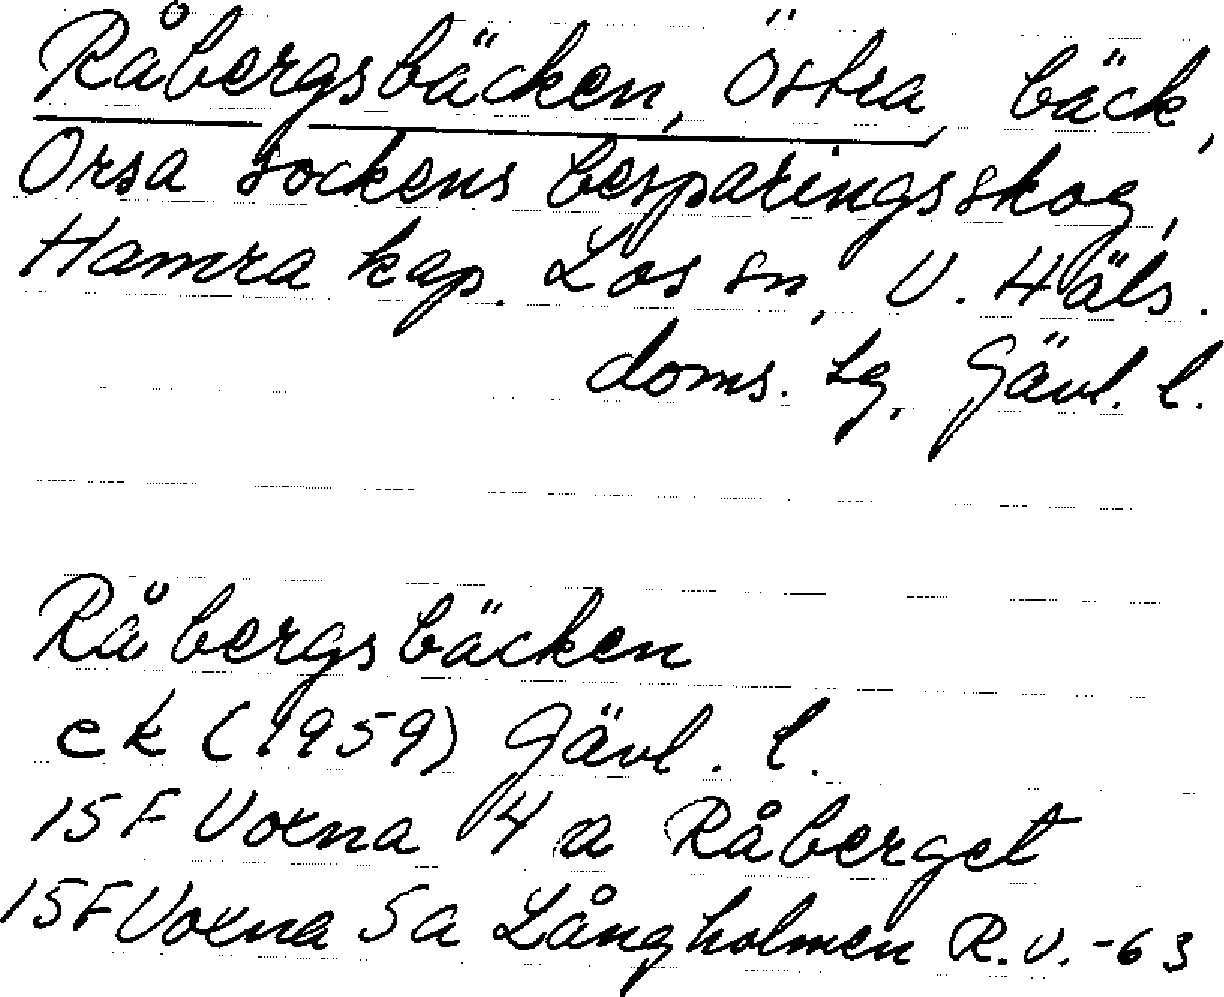 Råbergsbäcken, Östra, bäck,
Orsa sockens besparingsskog,
Hamra kap. Los sn, V. Häls.
doms. tg, Gävl. l.
Råbergsbäcken
ek (1959) Gävl. l.
15F Voxna 4 a Råberget
15F Voxna 5a Långholmen R.V.-63